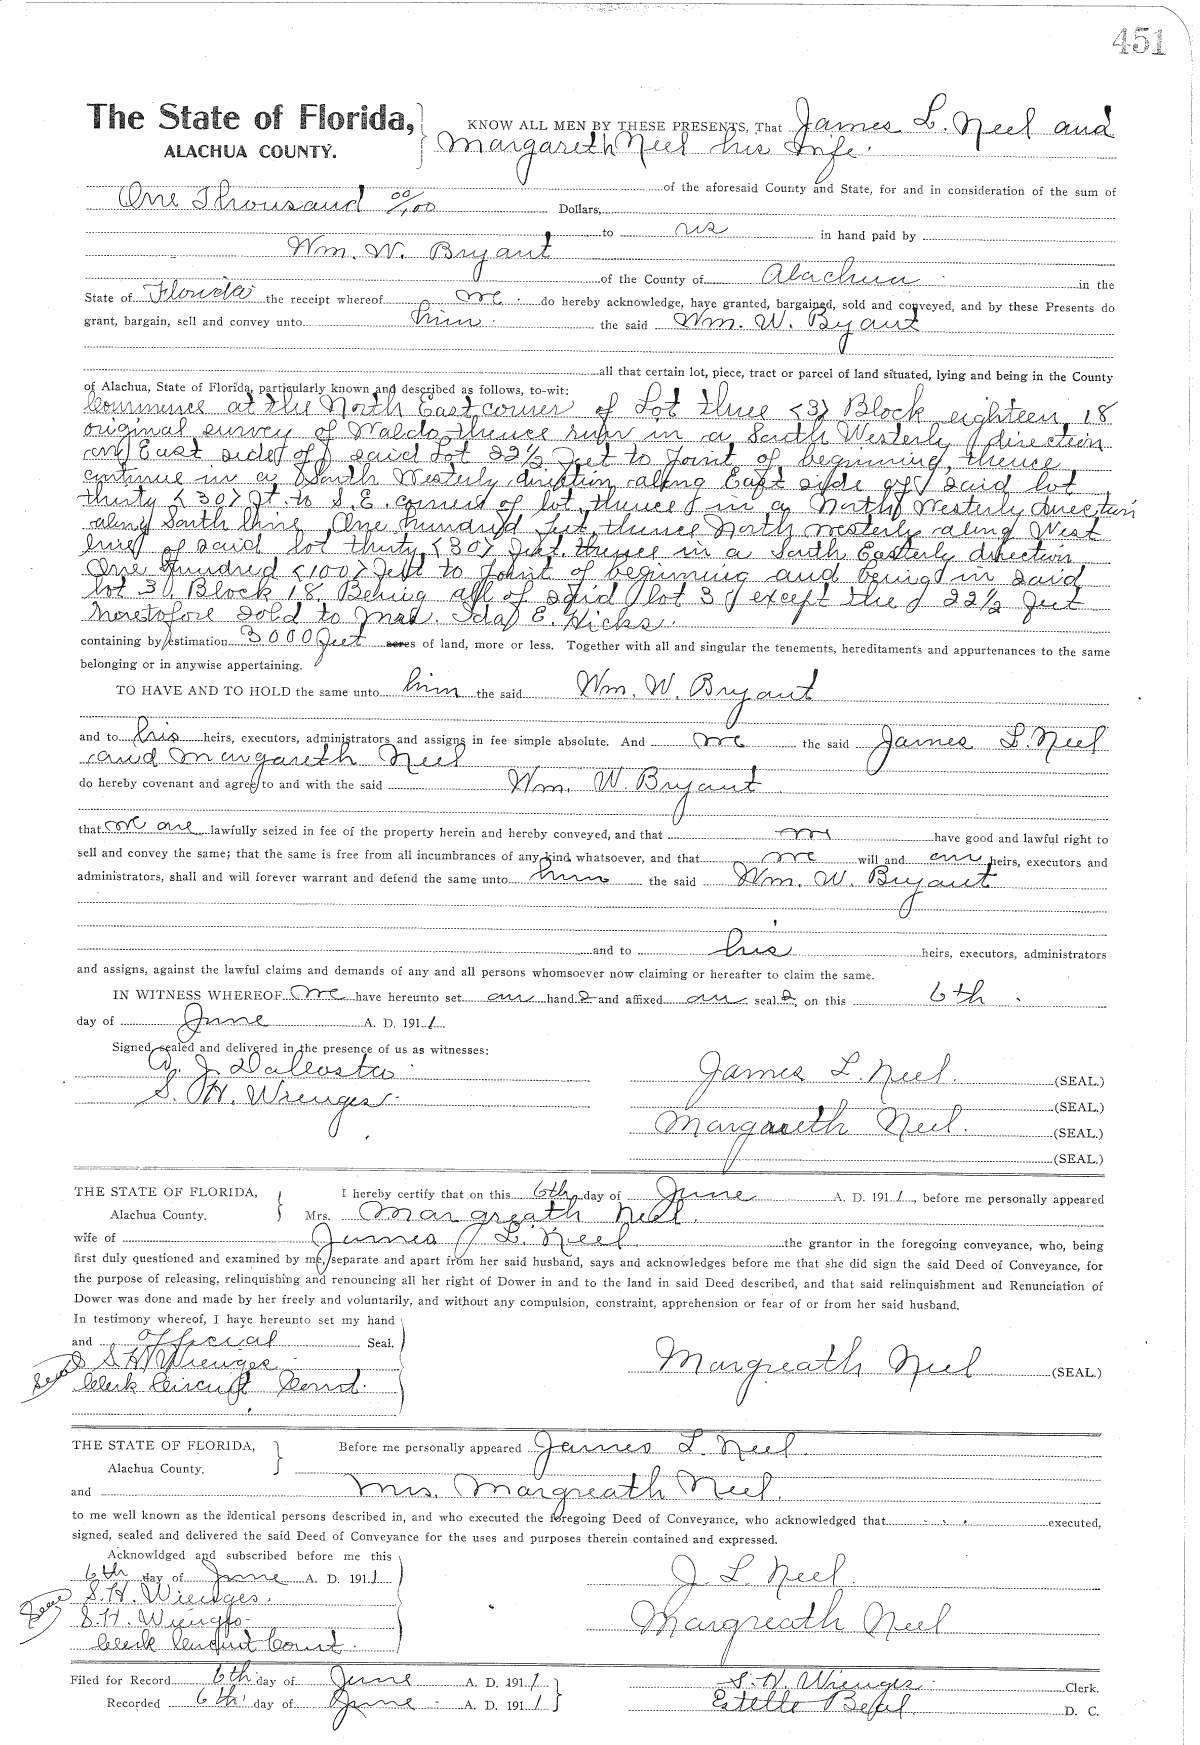 451
The State of Florida, KNOW ALL MEN BY THESE PRESENTS, That James L. Neel and
ALACHUA COUNTY. Margareth Neel his Wife.
of the aforesaid County and State, for and in consideration of the sum of
One Thousand 00/100 Dollars,
to us in hand paid by
Wm. W. Bryant
of the County of Alachua in the
State of Florida the receipt whereof we do hereby acknowledge, have granted, bargained, sold and conveyed, and by these Presents do
grant, bargain, sell and convey unto him the said Wm. W. Byant
all that certain lot, piece, tract or parcel of land situated, lying and being in the County
of Alachua, State of Florida, particularly known and described as follows, to-wit:
Commence at the North East corner of Lot three <3> Block eighteen, 18
original survey of Waldo, thence run in a South Westerly direction
on East side of said Lot 22½ feet to Point of beginning, thence
continue in a South Westerly direction along East side of said lot
thirty <30> ft. to S.E. corner of lot, thence in a North Westerly direction
along South line One hundred feet, thence North westerly along West
line of said lot thirty <30> feet. thence in a South Easterly direction
One Hundred <100> feet to Point of beginning and being in said
lot 3, Block 18. Being all of said lot 3 except the 22½ feet
heretofore sold to Mrs. Ida E. Hicks.
containing by estimation 3000 feet acres of land, more or less. Together with all and singular the tenements, hereditaments and appurtenances to the same
belonging or in anywise appertaining.
TO HAVE AND TO HOLD the same unto him the said Wm. W. Bryant
and to his heirs, executors, administrators and assigns in fee simple absolute. And we the said James L. Neel
and Margareth Neel
do hereby covenant and agree to and with the said Wm. W. Bryant
that we are lawfully seized in fee of the property herein and hereby conveyed, and that we have good and lawful right to
sell and convey the same; that the same is free from all incumbrances of any kind whatsoever, and that we will and our heirs, executors and
administrators, shall and will forever warrant and defend the same unto him the said Wm. W. Bryant
and to his heirs, executors, administrators
and assigns, against the lawful claims and demands of any and all persons whomsoever now claiming or hereafter to claim the same.
IN WITNESS WHEREOF We have hereunto set our hand s and affixed our seal s, on this 6th
day of June A. D. 1911.
Signed, sealed and delivered in the presence of us as witnesses:
J. Dacosta James L. Neel. (SEAL.)
S. H. Wienges. (SEAL.)
Margareth Neel. (SEAL.)
(SEAL.)
THE STATE OF FLORIDA, I hereby certify that on this 6th day of June A. D. 1911, before me personally appeared
Alachua County. Mrs. Margreath Neel.
wife of James L. Neel the grantor in the foregoing conveyance, who, being
first duly questioned and examined by me, separate and apart from her said husband, says and acknowledges before me that she did sign the said Deed of Conveyance, for
the purpose of releasing, relinquishing and renouncing all her right of Dower in and to the land in said Deed described, and that said relinquishment and Renunciation of
Dower was done and made by her freely and voluntarily, and without any compulsion, constraint, apprehension or fear of or from her said husband.
In testimony whereof, I have hereunto set my hand
and official Seal.
S H Wienges Margreath Neel (SEAL.)
Seal Clerk Circuit Court.
THE STATE OF FLORIDA, Before me personally appeared James L. Neel
Alachua County.
and Mrs. Margreath Neel.
to me well known as the identical persons described in, and who executed the foregoing Deed of Conveyance, who acknowledged that executed,
signed, sealed and delivered the said Deed of Conveyance for the uses and purposes therein contained and expressed.
Acknowldged and subscribed before me this
6th day of June A. D. 1911 J L Neel.
S. H. Wienges.
Seal S. H. Wienges Margreath Neel
Clerk Circuit Court.
Filed for Record 6th day of June A. D. 1911 S. H. Wienges Clerk.
Recorded 6th day of June A. D. 1911 Estelle D. C.